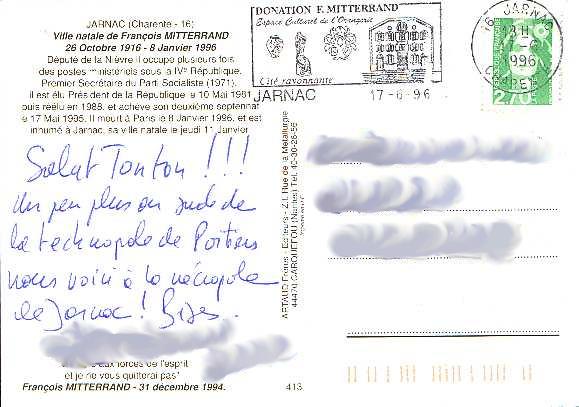 JARNAC (Charente - 16)
Ville natale de François MITTERRAND
26 Octobre 1916 - 8 Janvier 1996
Député de la Nièvre il occupe plusieurs fois
des postes ministériels sous la IVe République.
Premier Secrétaire du Parti Socialiste (1971),
il est élu Président de la République le 10 Mai 1981,
puis réélu en 1988, et achève son deuxième septennat
le 17 Mai 1995. Il meurt à Paris le 8 Janvier 1996, et est
inhumé à Jarnac, sa ville natale le jeudi 11 Janvier
Salut Tonton !!!
Un peu plus au sud de
la technopole de Poitiers
nous voici à la nécropole
de Jarnac ! Bises.
aux forces de l'esprit
et je ne vous quitterai pas"
François MITTERRAND - 31 décembre 1994.
413
ARTAUD Frères - Editeurs - Z.I. Rue de la Métallurgie
44470 CARQUEFOU (Nantes) Tél. 40-30-26-56
DONATION F. MITTERRAND
Espace Culturel de l'Orangerie
Cité rayonnante
JARNAC 17-6-96
16 JARNAC
18H
1996
CHARENTE
2,70